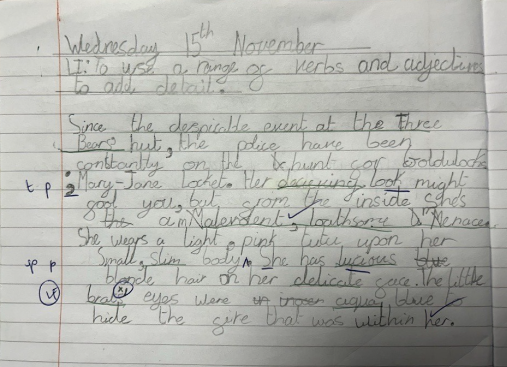 Wednesday 15th November
LI: To use a range of verbs and adjectives
to add detail.
Since the despicable event at the Three
Bears hut, the police have been
constantly on the hunt for Goldulocks
t p : Mary-Jane Locket. Her decieving look might
fool you, but from the inside finds
a Malevolent, loathsome Menace.
She wears a light, pink tutu upon her
sp p Small, slim body, She has lucious
blonde hair on her delicate face. The little
brat eyes were blue to
hide the fire that was within her.